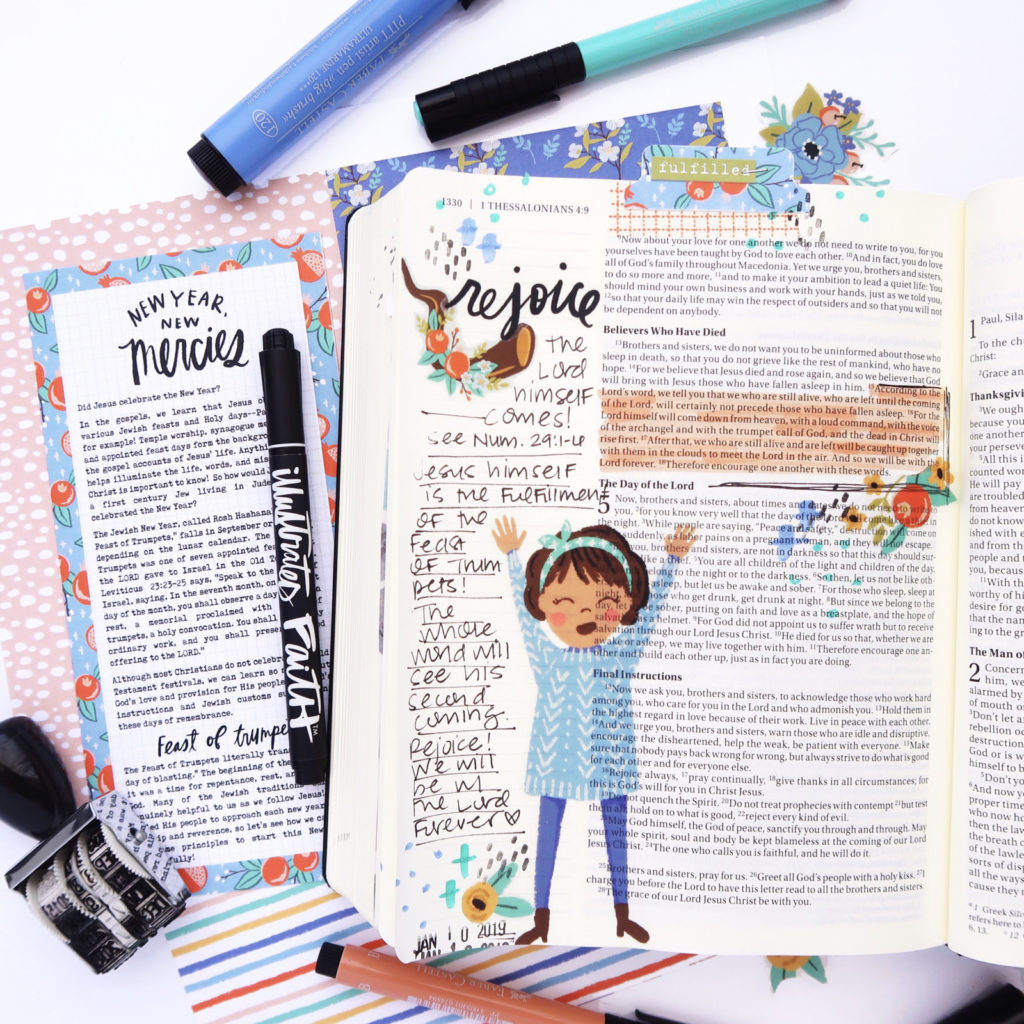 PITT artist pen »big brush«
ULTRAMARINE 120***
FABER-CASTELL
120
fulfilled
1330 | 1 THESSALONIANS 4:9
rejoice
the
Lord
himself
comes!
See Num. 29:1-6
Jesus himself
is the fulfillment
of the
Feast
of Trum
pets!
The
whole
world will
see his
second
coming.
Rejoice!
We will
be w/
the Lord
Forever
JAN 10 2019
9Now about your love for one another we do not need to write to you, for you
yourselves have been taught by God to love each other. 10And in fact, you do love
all of God's family throughout Macedonia. Yet we urge you, brothers and sisters,
to do so more and more, 11and to make it your ambition to lead a quiet life: You
should mind your own business and work with your hands, just as we told you,
12so that your daily life may win the respect of outsiders and so that you will not
be dependent on anybody.
Believers Who Have Died
13Brothers and sisters, we do not want you to be uninformed about those who
sleep in death, so that you do not grieve like the rest of mankind, who have no
hope. 14For we believe that Jesus died and rose again, and so we believe that God
will bring with Jesus those who have fallen asleep in him. 15According to the
Lord's word, we tell you that we who are still alive, who are left until the coming
of the Lord, will certainly not precede those who have fallen asleep. 16For the
Lord himself will come down from heaven, with a loud command, with the voice
of the archangel and with the trumpet call of God, and the dead in Christ will
rise first. 17After that, we who are still alive and are left will be caught up together
with them in the clouds to meet the Lord in the air. And so we will be with the
Lord forever. 18Therefore encourage one another with these words.
The Day of the Lord
5 Now, brothers and sisters, about times and dates we do not need to write
you, 2for you know very well that the day of the Lord
the night. 3While people are saying, "Peace and safety," destruction will come
suddenly, as labor pains on a pregnant woman, and they will not escape.
you, brothers and sisters, are not in darkness so that this day should sur-
like a thief. 5You are all children of the light and children of the day.
belong to the night or to the darkness. 6So then, let us not be like oth-
asleep, but let us be awake and sober. 7For those who sleep, sleep at
night, who get drunk, get drunk at night. 8But since we belong to the
day, let be sober, putting on faith and love as a breastplate, and the hope of
salvation as a helmet. 9For God did not appoint us to suffer wrath but to receive
salvation through our Lord Jesus Christ. 10He died for us so that, whether we are
awake or asleep, we may live together with him. 11Therefore encourage one an-
other and build each other up, just as in fact you are doing.
Final Instructions
12Now we ask you, brothers and sisters, to acknowledge those who work hard
among you, who care for you in the Lord and who admonish you. 13Hold them in
the highest regard in love because of their work. Live in peace with each other.
14And we urge you, brothers and sisters, warn those who are idle and disruptive,
encourage the disheartened, help the weak, be patient with everyone. 15Make
sure that nobody pays back wrong for wrong, but always strive to do what is good
for each other and for everyone else.
16Rejoice always, 17pray continually, 18give thanks in all circumstances; for
this is God's will for you in Christ Jesus.
19Do not quench the Spirit. 20Do not treat prophecies with contempt 21but test
them all; hold on to what is good, 22reject every kind of evil.
23May God himself, the God of peace, sanctify you through and through. May
your whole spirit, soul and body be kept blameless at the coming of our Lord
Jesus Christ. 24The one who calls you is faithful, and he will do it.
25Brothers and sisters, pray for us. 26Greet all God's people with a holy kiss. 27I
charge you before the Lord to have this letter read to all the brothers and sisters.
28The grace of our Lord Jesus Christ be with you.
NEW YEAR,
NEW
mercies
Did Jesus celebrate the New Year?
In the gospels, we learn that Jesus
various Jewish feasts and Holy days--
for example! Temple worship, synagogue
and appointed feast days form the background
the gospel accounts of Jesus' life. Anything
helps illuminate the life, words, and
Christ is important to know! So how would
a first century Jew living in
celebrated the New Year?
The Jewish New Year, called Rosh Hashana
Feast of Trumpets," falls in September or
depending on the lunar calendar. The
Trumpets was one of seven appointed
the LORD gave to Israel in the Old
Leviticus 23:23-25 says, "Speak to the
Israel, saying, In the seventh month, on
day of the month, you shall observe a day
rest, a memorial proclaimed with
trumpets, a holy convocation. You shall
ordinary work, and you shall present
offering to the LORD."
Although most Christians do not celebrate
Testament festivals, we can learn so
God's love and provision for His people
instructions and Jewish customs
these days of remembrance.
Feast of trumpe
The Feast of Trumpets literally
day of blasting." The beginning of the
it was a time for repentance, rest, and
God. Many of the Jewish traditions
genuinely helpful to us as we follow Jesus!
His people to approach each new year
and reverence, so let's see how we
some principles to start this New
illustrated FAITH™
1 Paul, Sila
To the ch
Christ:
2Grace an
Thanksgivi
3We ough
because you
one another
persecution
5All this i
counted wor
He will pay
are troubled
from heaven
do not know
ished with e
and from th
people and t
you, because
11With th
worthy of hi
desire for go
that the nam
ing to the gr
The Man of
2 Concerni
him, we
alarmed by
of mouth or
3Don't let an
rebellion occ
destruction
God or is wo
himself to b
5Don't yo
6And now yo
proper time
who now ho
then the law
the breath of
of the lawle
sorts of disp
all the ways
cause they r
a 1 Greek Silv
refers here to
6, 13.
FABER-CASTELL